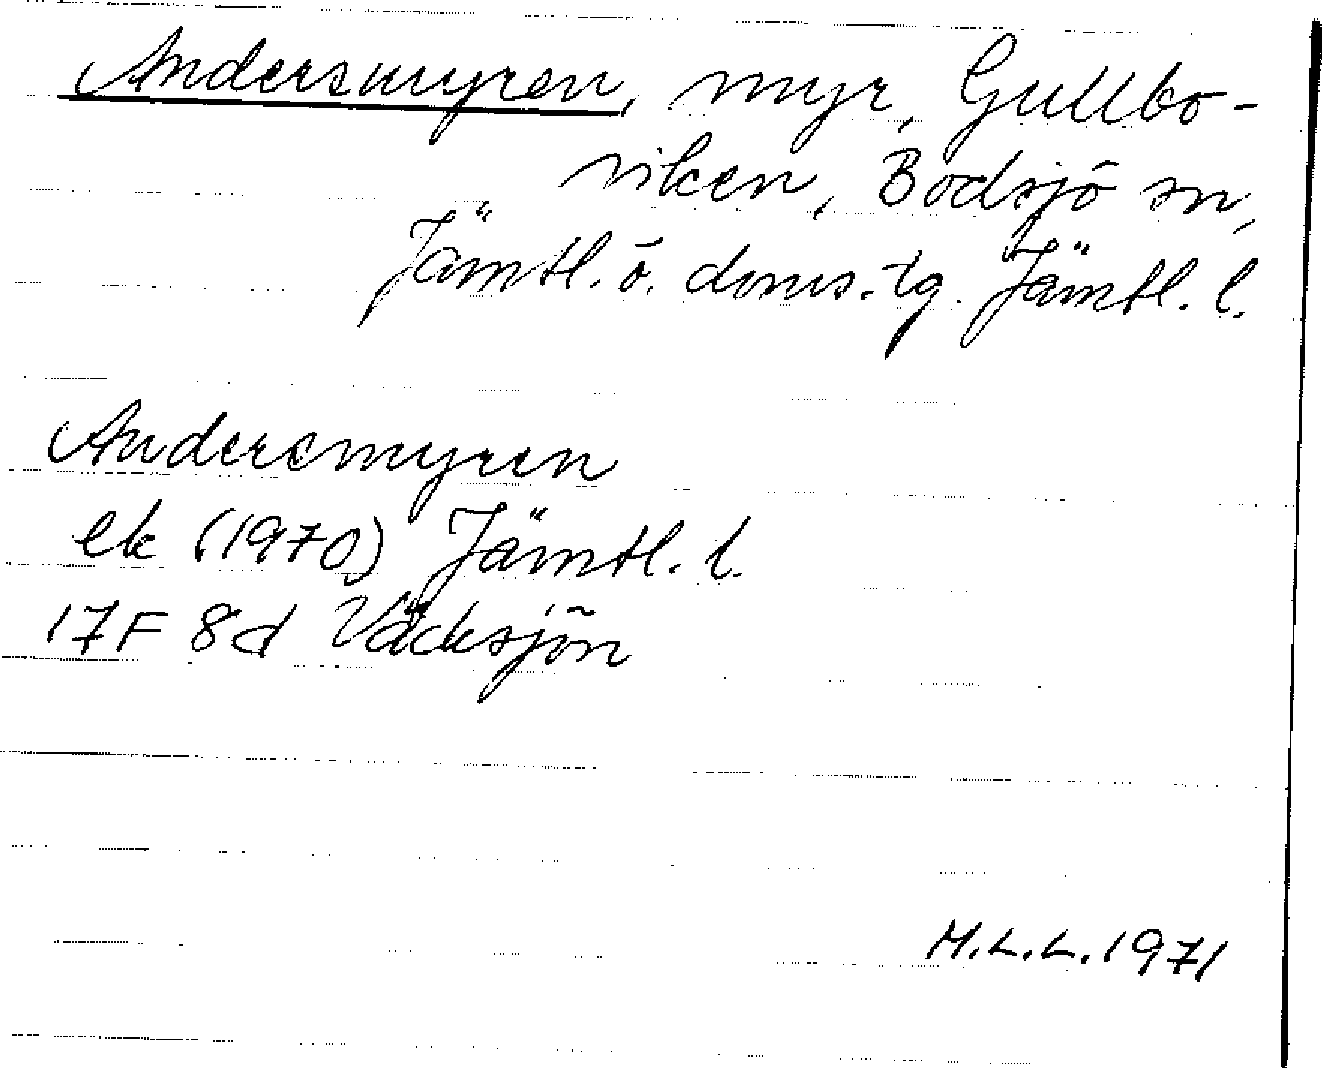 Andersmyren, myr, Gullbo-
viken, Bodsjö sn,
Jämtl. ö. doms. tg. Jämtl. l.
Andersmyren
ek (1970) Jämtl. l.
17F 8d Väcksjön
M.L.L. 1971